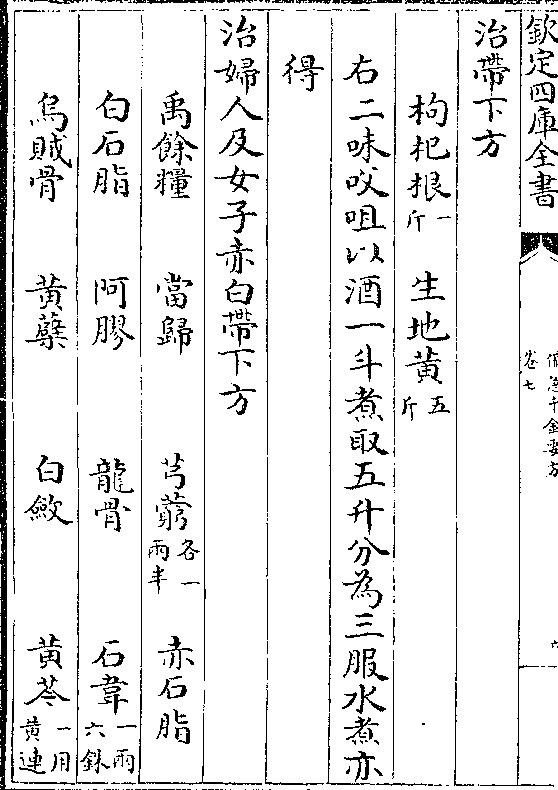 欽定四庫全書
備急千金要方
卷七
六
治帶下方
枸杞根一斤 生地黃五斤
右二味㕮咀以酒一斗煮取五升分為三服水煮亦
得
治婦人及女子赤白帶下方
禹餘糧 當歸 芎藭各一兩半 赤石脂
白石脂 阿膠 龍骨 石韋一兩六銖
烏賊骨 黃蘗 白斂 黃芩一用黃連